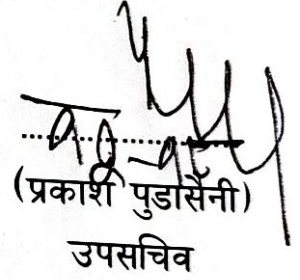 (प्रकाश पुडासैनी)
उपसचिव